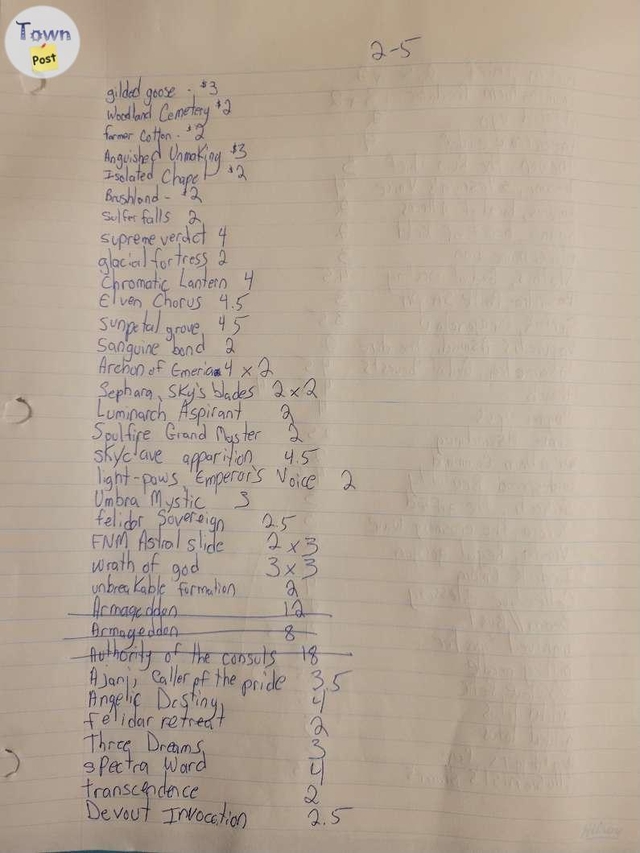 Town
Post
2-5
gilded goose - $3
Woodland Cemetery $2
farmer Cotton - $2
Anguished Unmaking $3
Isolated Chapel $2
Brushland - $2
sulfer falls 2
supreme verdict 4
glacial fortress 2
Chromatic Lantern 4
Elven Chorus 4.5
sunpetal grove 4.5
Sanguine bond 2
Archon of Emeria 4 x 2
Sephara, Sky's blades 2x2
Luminarch Aspirant 2
Soulfire Grand Master 2
skyclave apparition 4.5
light-paws, Emperor's Voice 2
Umbra Mystic 3
felidar Sovereign 2.5
FNM Astral slide 2x3
wrath of god 3x3
unbreakable formation 2
Armageddon 12
Armageddon 8
Authority of the consuls 18
Ajani, Caller of the pride 3.5
Angelic Destiny 4
felidar retreat 2
Three Dreams 3
spectra Ward 4
transcendence 2
Devout Invocation 2.5